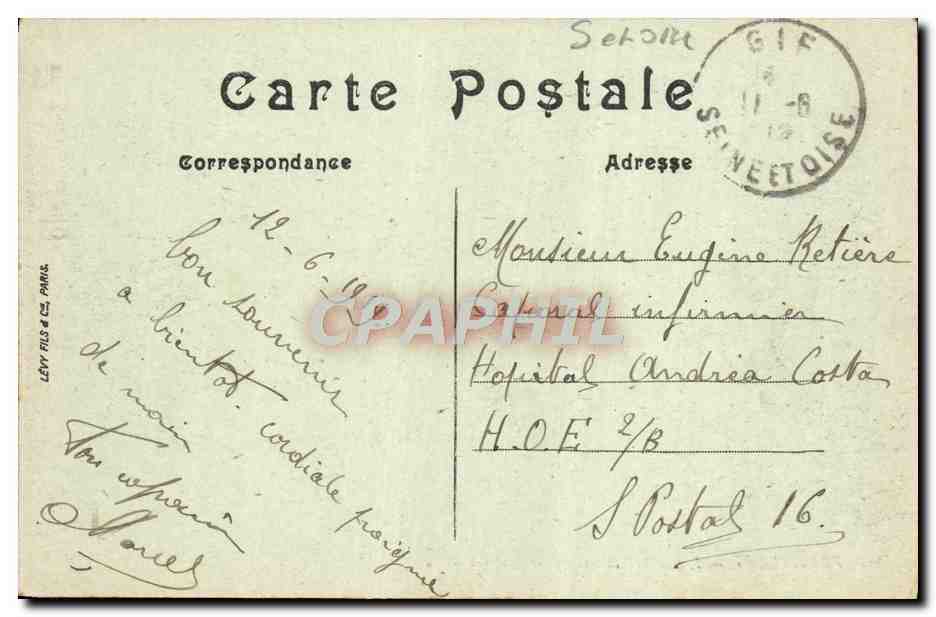 Carte Postale
Correspondance
Adresse
GIF
11 -6
SEINE ET OISE
LÉVY FILS & Cie, PARIS.
12-6-19
bon souvenir
a bientot. cordiale poignée
de main
Ton copain
Marcel
Monsieur Eugène Retière
Caporal infirmier
Hopital Andrea Costa
H.O.E 2/B
S Postal 16.
CPAPHIL